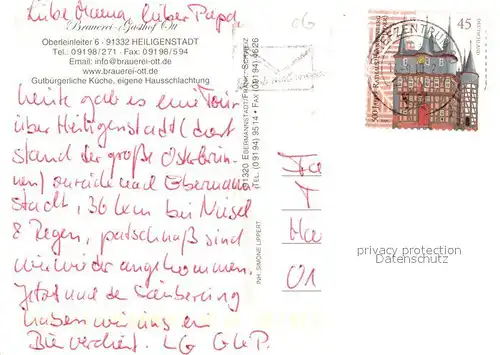 Liebe Mama, lieber Papa,
Brauerei-Gasthof Ott
Oberleinleiter 6 - 91332 HEILIGENSTADT
Tel.: 09198/271 · Fax: 09198/594
Email: info@brauerei-ott.de
www.brauerei-ott.de
Gutbürgerliche Küche, eigene Hausschlachtung
heute gab es eine Tour
über Heiligenstadt (dort
stand der große Osterbrun-
nen) zurück nach Ebermann-
stadt, 36 km bei Niesel
& Regen, patschnaß sind
wir wieder angekommen.
Jetzt nach der Säuberung
haben wir uns ein
Bier verdient. LG G+P.
INH. SIMONE LIPPERT
91320 EBERMANNSTADT/FRÄNK. SCHWEIZ
TEL. (09194) 9514 · FAX (09194) 4626
06
BRIEFZENTRUM
45
DEUTSCHLAND
500 Jahre Rathaus
Fa
T
Ha
01
privacy protection
Datenschutz